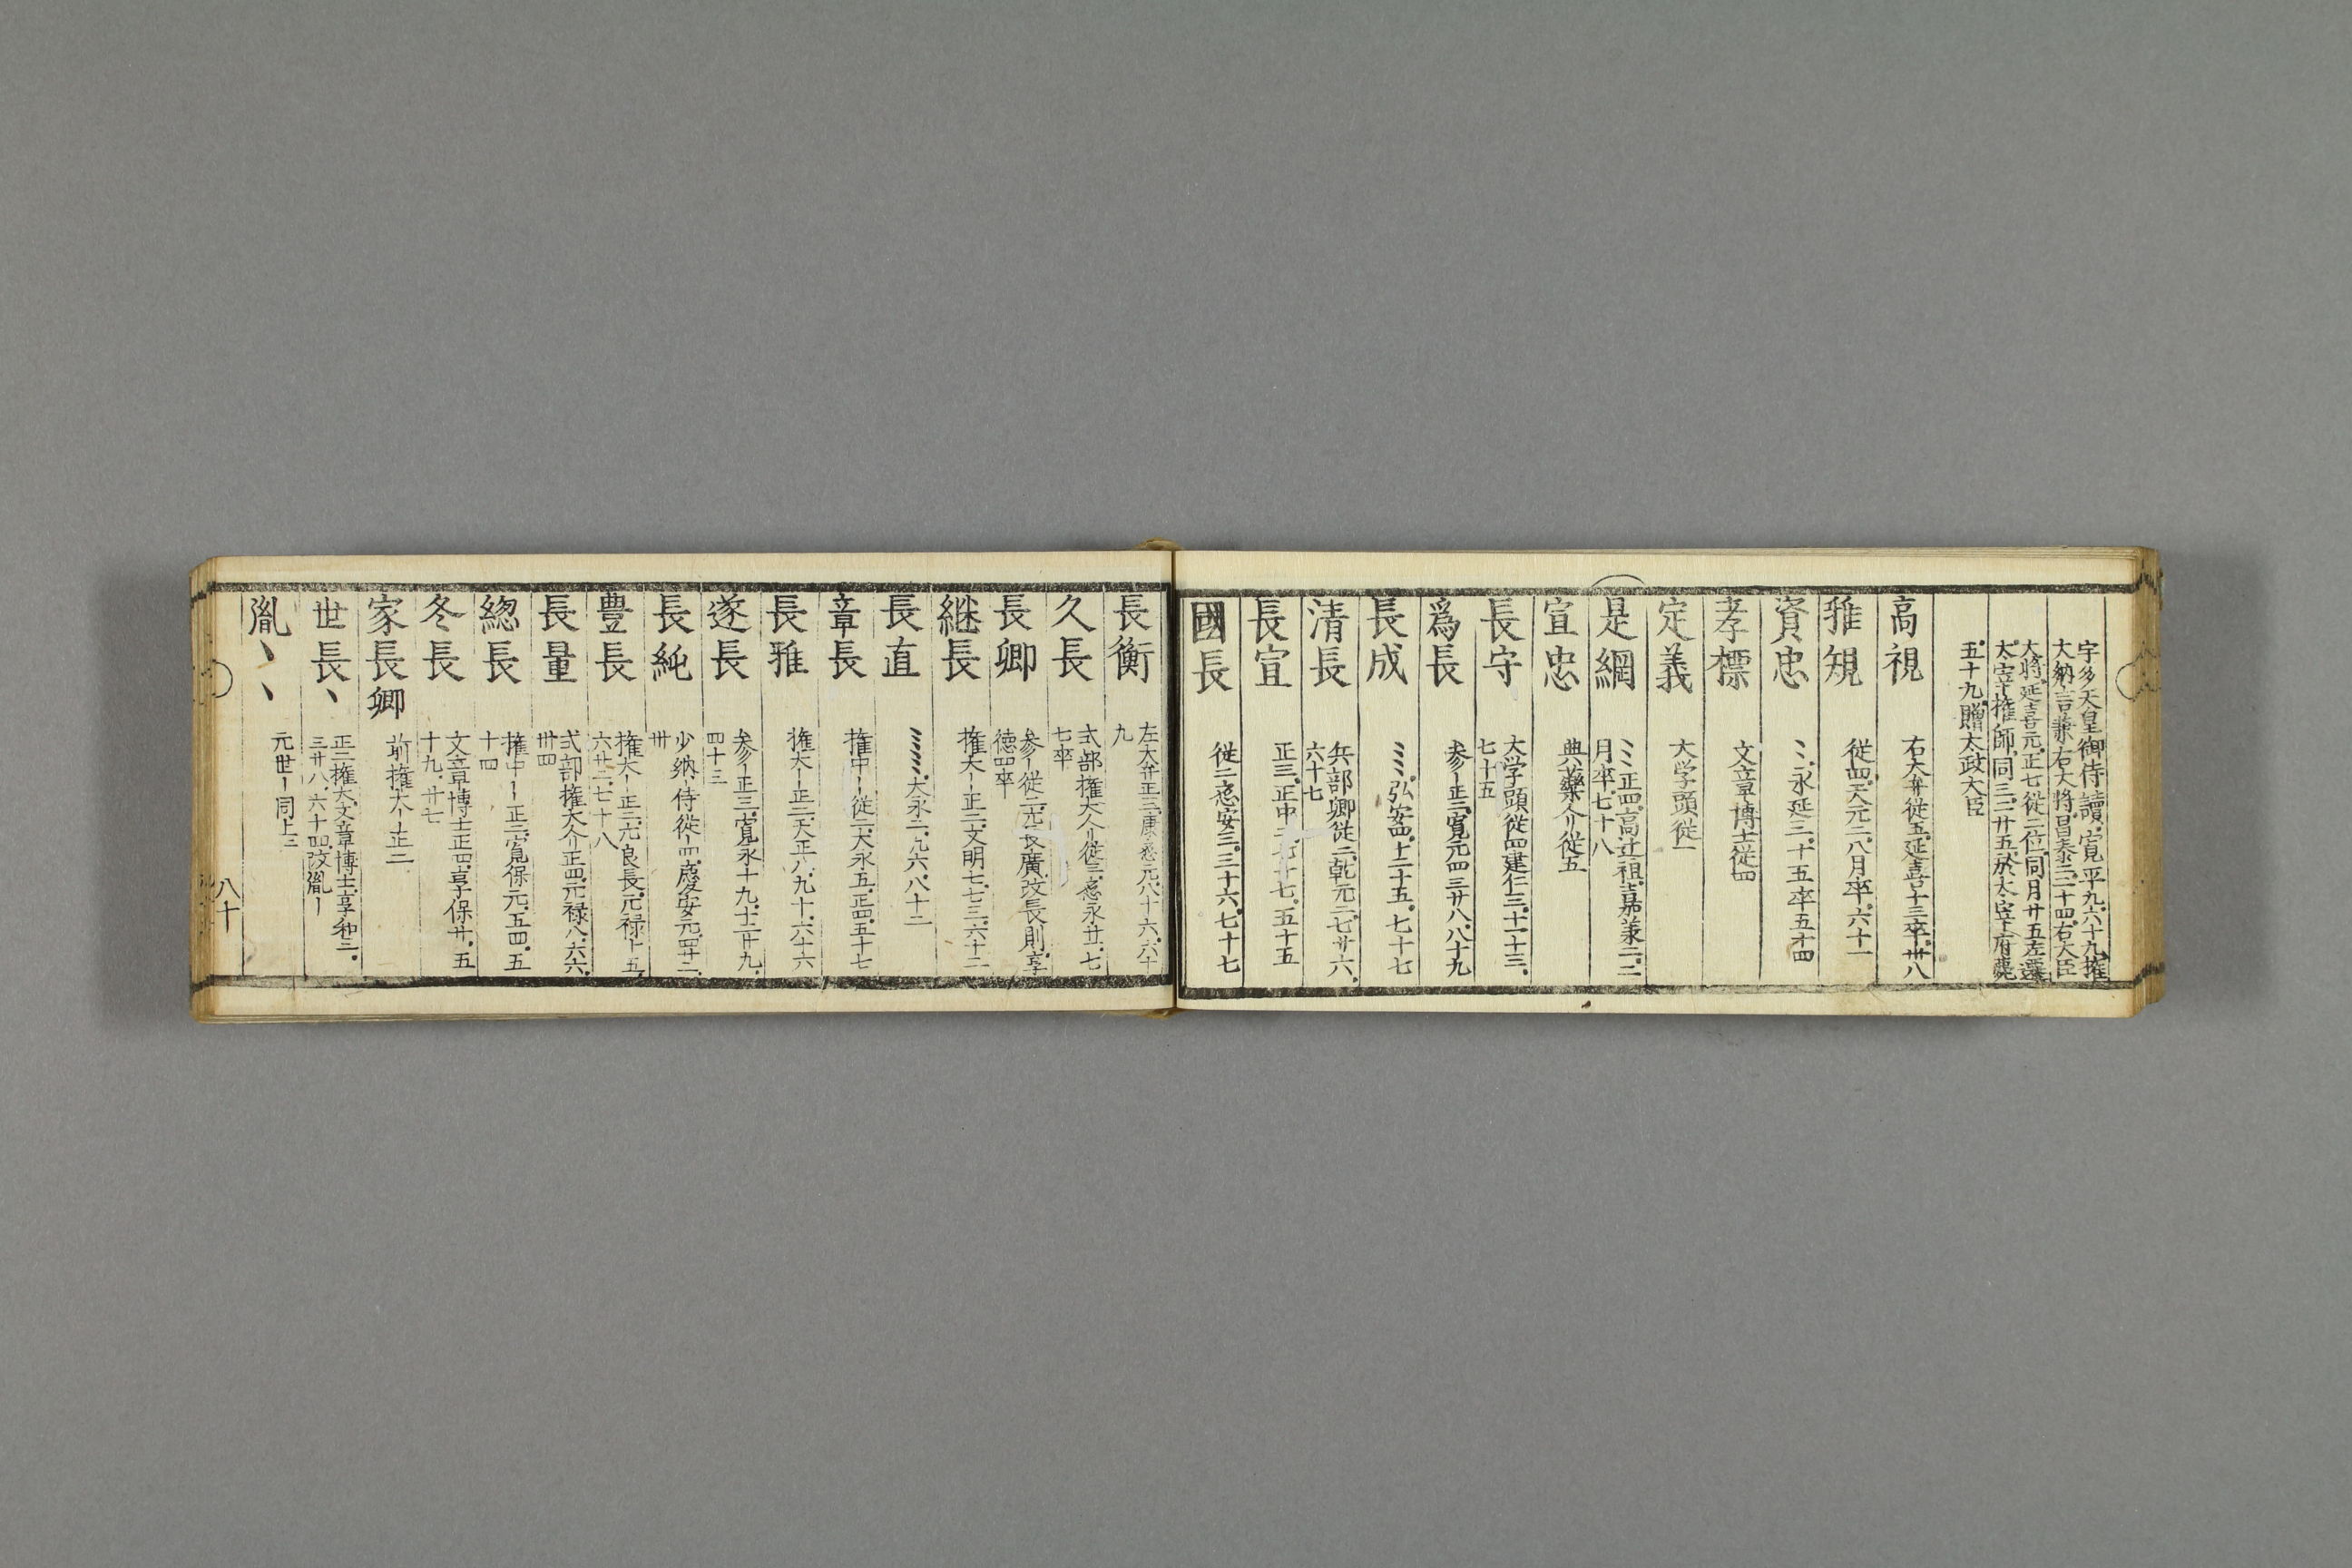 宇多天皇御侍讀寛平九六十九權
大納言兼右大將昌泰二二十四右大臣
大將延喜元正七從二位同月廿五左遷
太宰權師同三二廿五於太宰府薨
五十九贈太政大臣
高視 右大弁從五延喜十三卒卅八
雅規 從四天元二八月卒六十一
資忠 ミミ永延三二十五卒五十四
孝標 文章博士從四
定義 大学頭從一
是綱 ミミ正四高辻祖嘉兼二三
月卒七十八
宣忠 典藥介从從五
長守 大学頭從四建仁三十二十三
七十五
爲長 参ー正二寛元四三廿八八十九
長成 ミミ弘安四十二十五七十七
清長 兵部卿從二乾元二七廿六
六十七
長宣 正三正中二七十七五十五
國長 從二應安三三十六七十七
長衡 左大弁正三康應元八十六六十
九
久長 式部權大介从從三應永廿一七
七卒
長卿 参ー從二元長廣改長則享
德四卒
継長 權大ー正二文明七七三六十二
長直 ミミミミ大永二九六八十二
章長 權中ー從二大永五正四五十七
長雅 權大ー正二天正八九十六十六
遂長 参ー正三寛永十九十二廿九
四十三
長純 少納ー侍從ー四慶安元四廿二
卅
豊長 權大ー正二六良長元禄十五
六廿二七十八
長量 式部權大介正四元禄八六六
卅四
総長 權中ー正二寛保元五四五
十四
冬長 文章博士正四享保廿五
十九廿七
家長卿 前權大ー正二
世長丶 正二權大文章博士享和二
三廿八六十四改胤ー
胤丶丶 元世ー同上三
八十